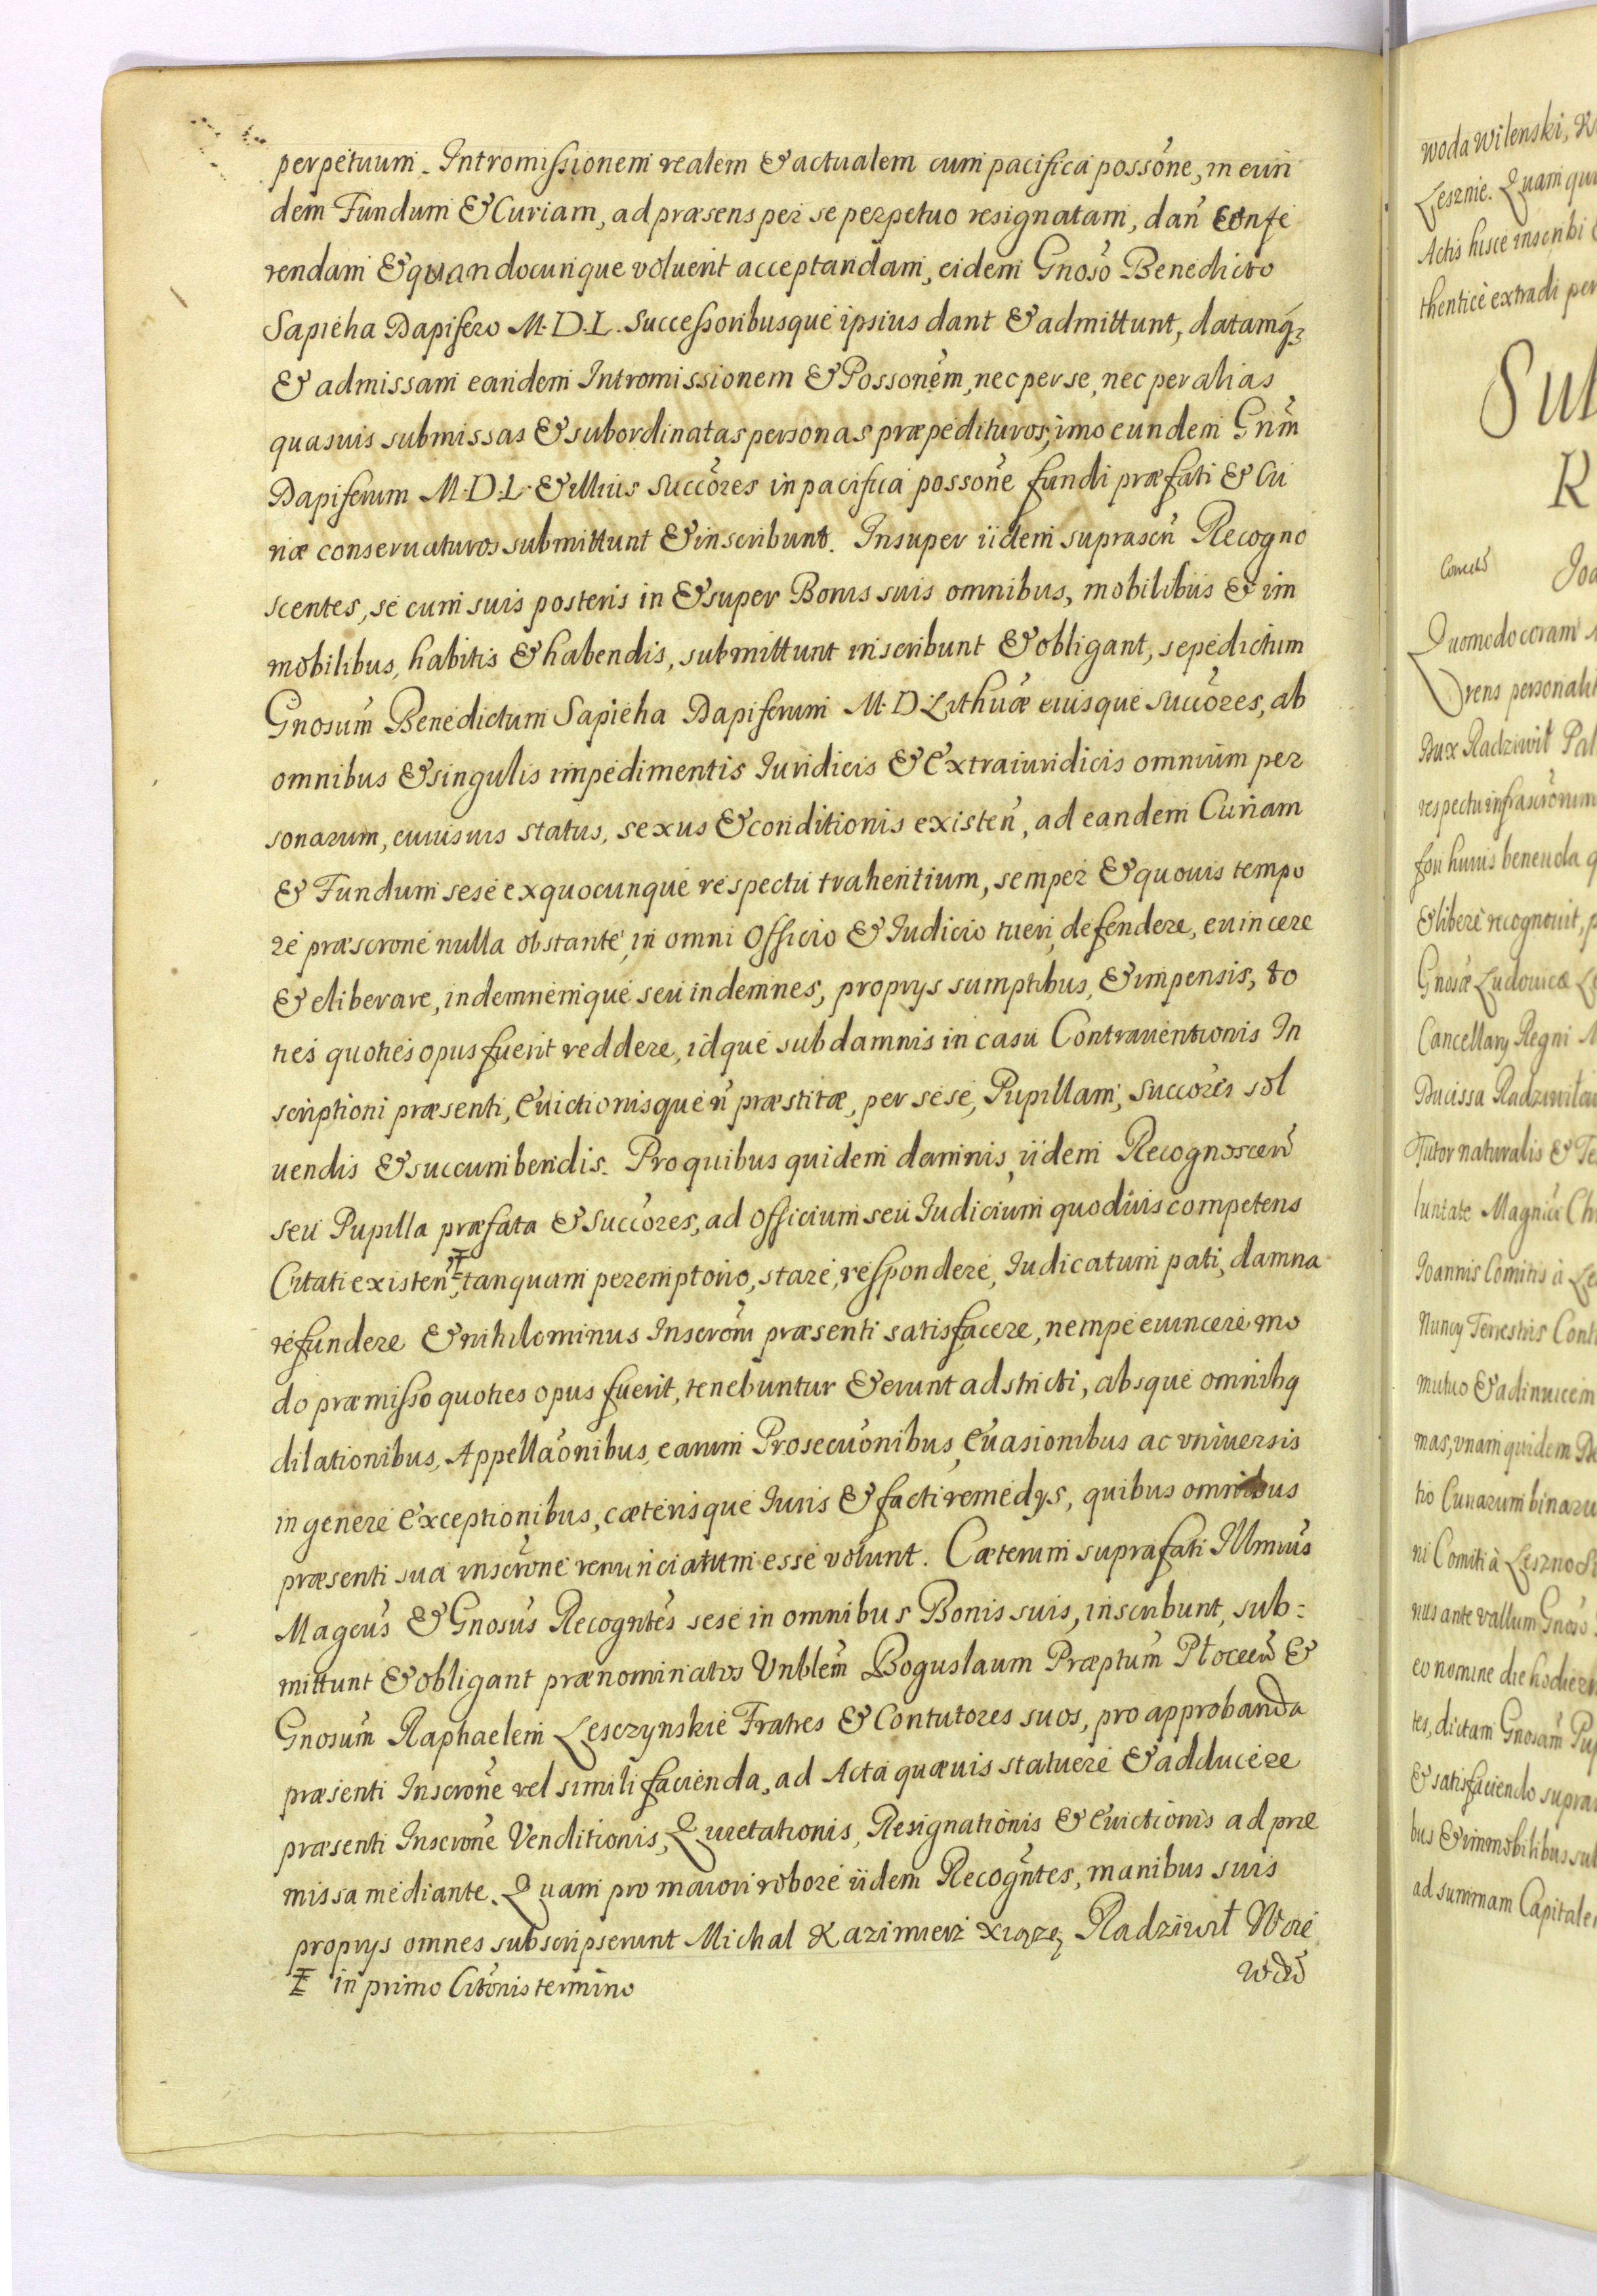 perpetuum. Intromissionem realem & actualem cum pacifica possõne, in eun
dem Fundum & Curiam, ad præsens per se perpetuo resignatam, dañ confe
rendam & quandocunque voluerit acceptandam, eidem Gnoso Benedicto
Sapieha Dapifero M.D.L. Successoribusque ipsius dant & admittunt, datamq3
& admissam eandem Intromissionem & Possonẽm, nec per se, nec per alias
quasuis submissas & subordinatas personas præpedituros, imo eundem Gñm
Dapiferum M.D.L. & illius Succõres in pacifica possonẽ fundi præfati & Cu
riæ conseruaturos submittunt & inscribunt. Insuper iidem suprascrñ Recogno
scentes, se cum suis posteris in & super Bonis suis omnibus, mobilibus & im
mobilibus, habitis & habendis, submittunt inscribunt & obligant, sepedictum
Gnosum̃ Benedictum Sapieha Dapiferum M.D Lithuæ eiusque succõres, ab
omnibus & singulis impedimentis Iuridicis & Extraiuridicis omnium per
sonarum, cuiusuis status, sexus & conditionis existeñ, ad eandem Curiam
& Fundum sese ex quocunque respectu trahentium, semper & quouis tempo
re præscrone nulla obstante, in omni Officio & Iudicio tueri, defendere, euincere
& eliberare, indemnemque seu indemnes, proprys sumptibus, & impensis, to
ties quoties opus fuerit reddere, idque sub damnis in casu Contrauentionis In
scriptioni præsenti, Euictionisque ñ præstitæ, per sese, Pupillam, succõres sol
uendis & succumbendis. Pro quibus quidem damnis iidem Recognosceñ
seu Pupilla præfata & succõres, ad Officium seu Iudicium quoduis competens
Citati existeñ, ‡ tanquam peremptorio, stare, respondere, Iudicatum pati, damna
refundere & nihilominus Inscrõni præsenti satisfacere, nempe euincere mo
do præmisso quoties opus fuerit, tenebuntur & erunt adstricti, absque omnibq
dilationibus, Appellaõnibus, earum Prosecuõnibus, Euasionibus ac vniuersis
in genere Exceptionibus, cæterisque Iuris & facti remedys, quibus omnibus
præsenti sua inscrõne renunciatum esse volunt. Cæterum suprafati Illmus
Magcus & Gnosus Recogntes sese in omnibus Bonis suis, inscribunt, sub:
mittunt & obligant prænominatos Vnblem̃ Boguslaum Præptum̃ Płoceñ &
Gnosum̃ Raphaelem Lesczynskie Fratres & Contutores suos, pro approbanda
præsenti Inscronẽ vel simili facienda, ad Acta quæuis statuere & adducere
præsenti Inscronẽ Venditionis, Quietationis, Resignationis & Euictionis ad præ
missa mediante. Quam pro maiori robore iidem Recogñtes, manibus suis
proprys omnes subscripserunt Michal Kazimierz Xiąze Radziwił Woie
‡ in primo Citõnis termino
woda Wilenski, K
Lesznie. Quam qui
Actis hisce inscribi
thentice extradi per
Sul
R
Joa
Quomodo coram
rens personalit
Dux Radziwił Pal
respectu infrascrõrum
fori huius benenda q
& libere recognouit, p
Gnosæ Ludouicæ Le
Cancellary Regni M
Ducissa Radziwiłow
Tutor naturalis & Te
luntate Magnici Ch
Joannis Comitis à Le
Nuncy Terrestris Cont
mutuo & adinuicem
mas, vnam quidem De
tio Curiarum binaru
ni Comiti à Leszno
nus ante vallum Gnoso
eo nomine die hodiern
tes, dictam Gnosam̃ Pup
& satisfaciendo supra
bus & immobilibus sub
ad summam Capitale